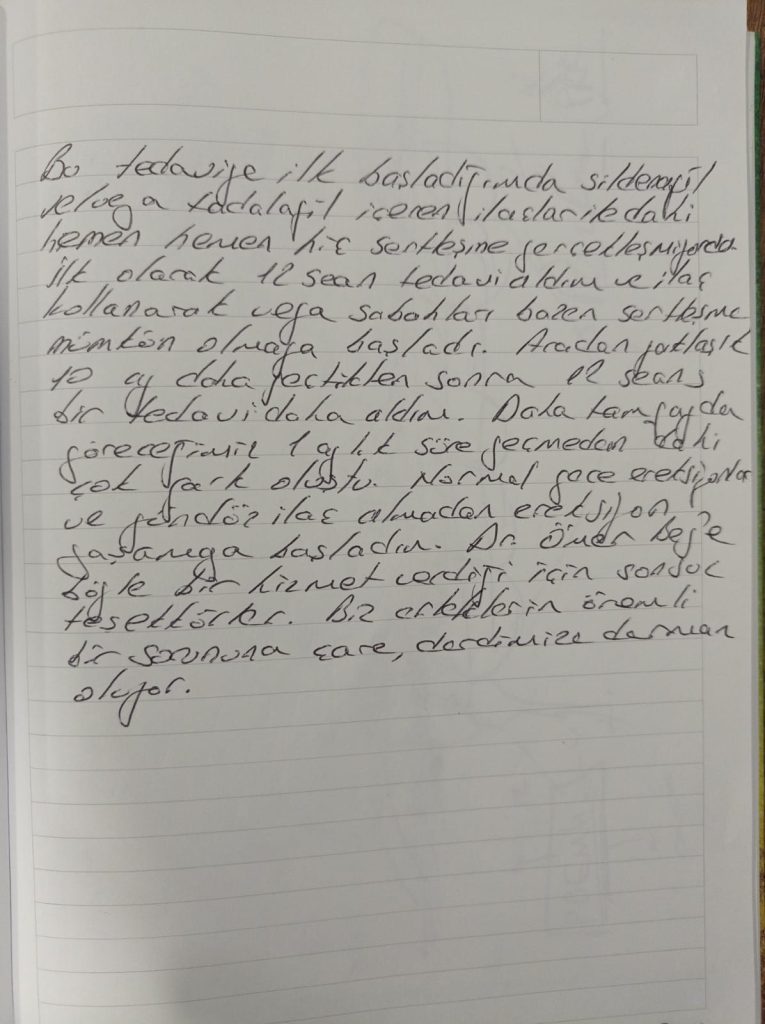 Bu tedaviye ilk başladığımda sildenafil
ve/veya tadalafil içeren ilaçlarile dahi
hemen hemen hiç sertleşme gerçekleşmiyordu.
İlk olarak 12 sean tedavi aldım ve ilaç
kullanarak veya sabahları bazen sertleşme
mümkün olmaya başladı. Aradan yaklaşık
10 ay daha geçtikten sonra 12 seans
bir tedavi daha aldım. Daha tam fayda
göreceğimiz 1 aylık süre geçmeden dahi
çok fark oluştu. Normal gece ereksiyonlar
ve gündüz ilaç almadan ereksiyon
yaşamaya başladım. Dr. Ömer Bey'e
böyle bir hizmet verdiği için sonsuz
teşekkürler. Biz erkeklerin önemli
bir sorununa çare, derdimize derman
oluyor.